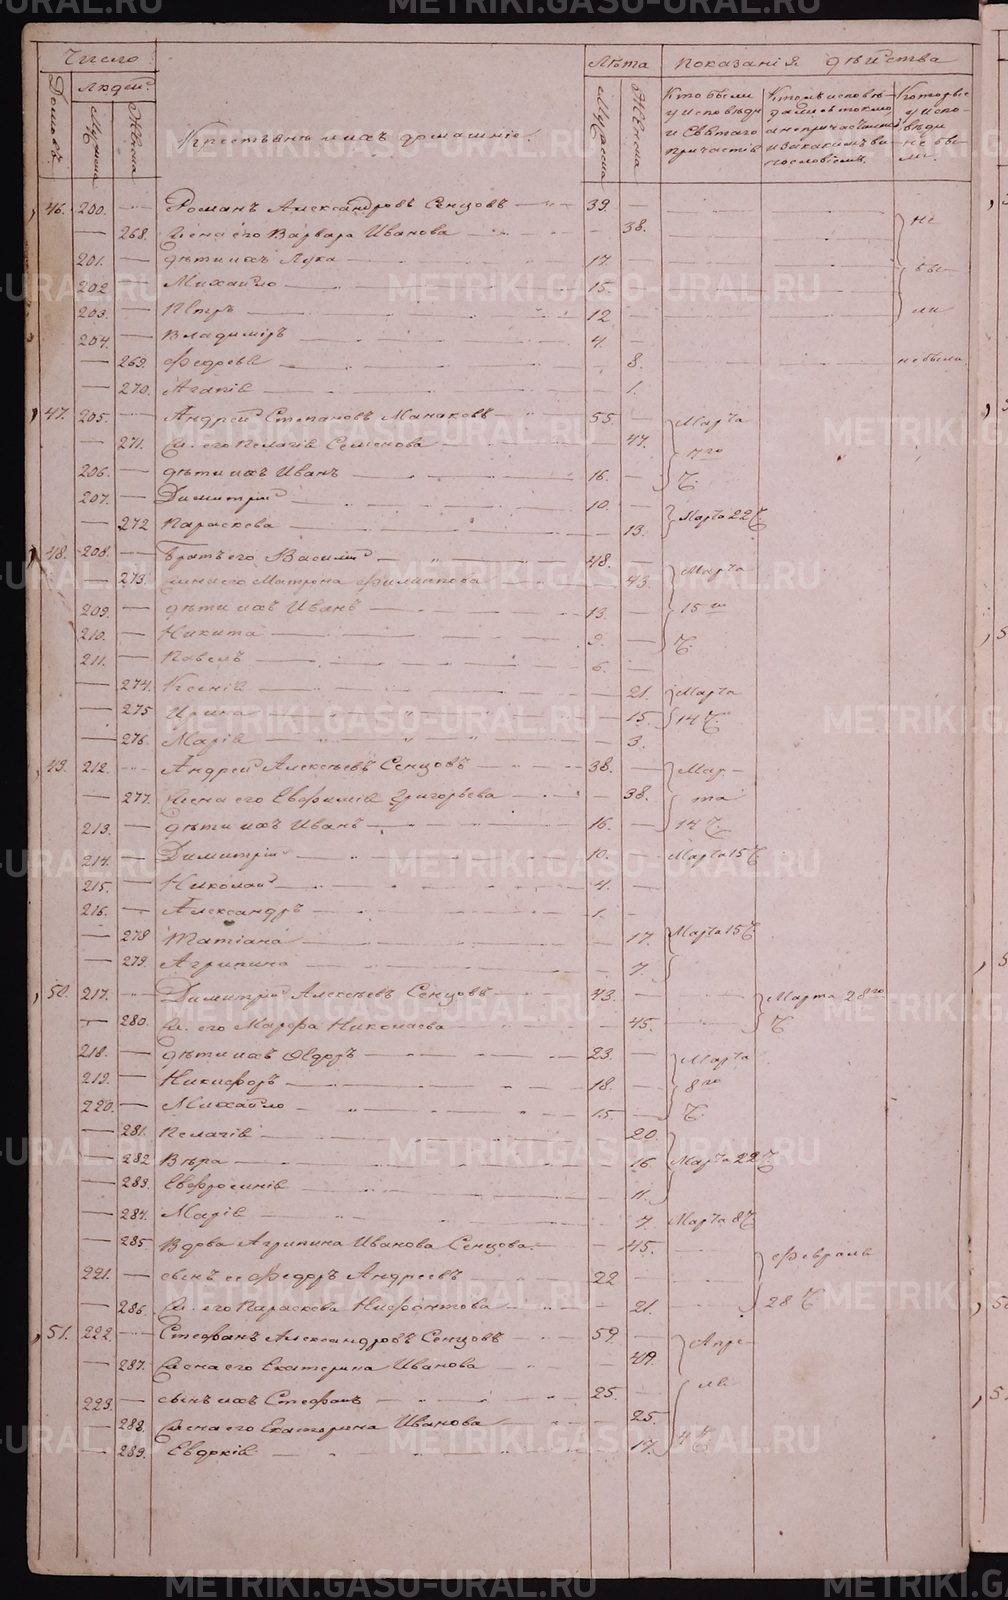 METRIKI.GASO-URAL.RU
Число
Лѣта
Показанія дѣйства
Людей
Домовъ
Мужеска
Женска
Крестьяне и ихъ домашніе
Мужеска
Женска
Кто были у исповѣди и Святаго Причастія
Которые у исповѣди не были
46. 200. Романъ Александровъ Сенцовъ 39.
268. Жена его Варвара Иванова 38. не
201. дѣти ихъ Лука 17. бы-
202 Михайло 15.
203. Петръ 12 ли
204. Владиміръ 4.
269. 8. не были
270. Агапія 1.
47. 205. Андрей Степановъ Манаковъ 55. Марта
271. Ж. его Пелагія Семенова 47. 7го
206. дѣти ихъ Иванъ 16. Ч.
207. Димитрій 10.
272 Параскева 13. Марта 22 Ч
48. 208. Братъ его Василій 48.
273. жена его Матрона Филиппова 43 Марта
209. дѣти ихъ Иванъ 13. 15го
210. Никита 9. Ч.
211. Павелъ 6.
274. Ксенія 21. Марта
275 Ирина 15. 14 Ч.
276. Марія 3.
49. 212. Андрей Алексѣевъ Сенцовъ 38. Мар-
277. Жена его Евфимія Григорьева 38. та
213. дѣти ихъ Иванъ 16. 14 Ч.
214. Димитрій 10. Марта 15 Ч
215. Николай 4.
216. Александръ 1.
278 Татіана 17. Марта 15 Ч
279. Агрипина 7.
50. 217. Димитрій Алексѣевъ Сенцовъ 43. Марта 28го
280. Ж. его Марфа Николаева 45. Ч.
218. дѣти ихъ Ѳедоръ 23. Марта
219. Никифоръ 18. 8го
220. Михайло 15. Ч.
281. Пелагія 20.
282 Вѣра 16 Марта 22 Ч
283. Евфросинія 11.
284. Марія 7. Марта 8 Ч
285. Вдова Агрипина Иванова Сенцова. 45. Февраля
221. сынъ ее Федоръ Андреевъ 22
286. Ж. его Параскева Нифонтова 21. 28 Ч
51. 222. Стефанъ Александровъ Сенцовъ 59. Апре-
287. Жена его Екатерина Иванова 49. ля
223. сынъ ихъ Стефанъ 25.
288. Жена его Екатерина Иванова 25.
289. Евдокія 17. 4 Ч